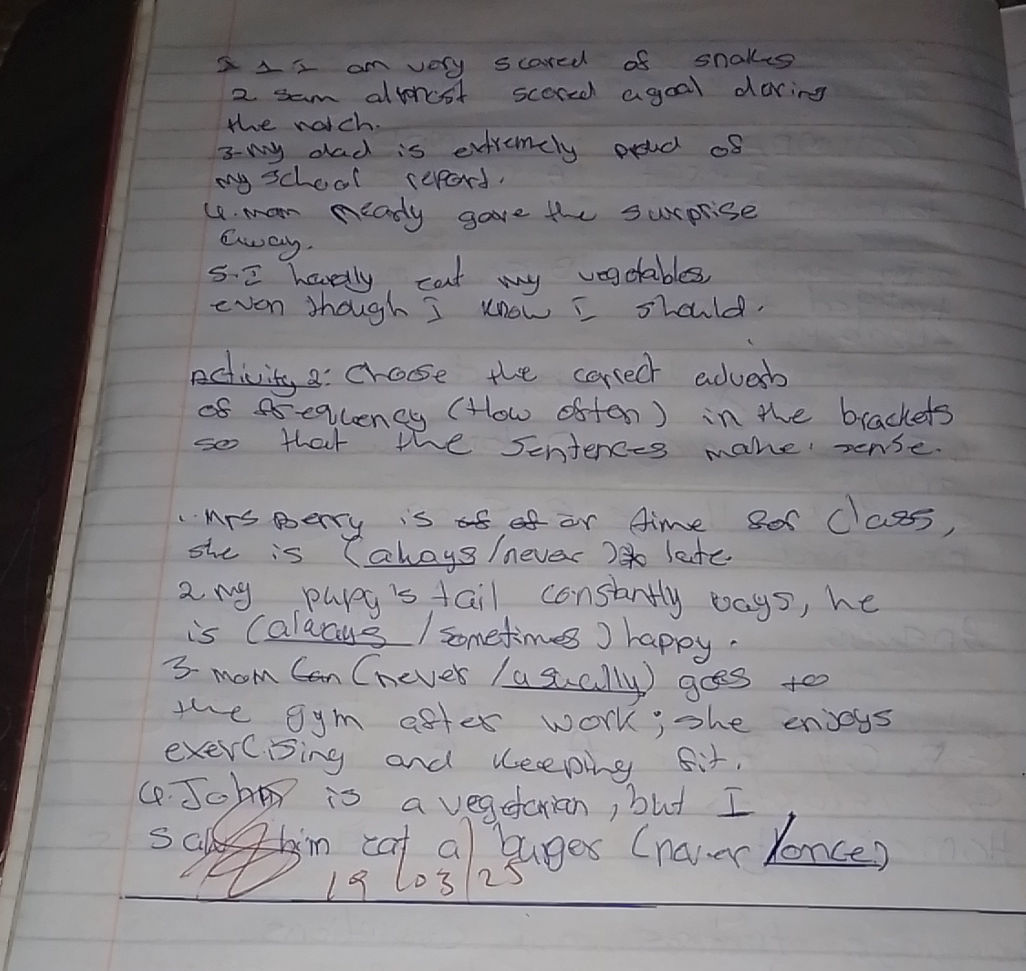 1 I am very scared of snakes
2 Sam almost scored a goal during
the match.
3-My dad is extremely proud of
my school report.
4.mom nearly gave the surprise
away.
5-I hardly eat my vegetables
even though I know I should.
Activity 2: Choose the correct adverb
of frequency (How often) in the brackets
so that the Sentences make sense.
1.Mrs Berry is or time for class,
she is (always/never) late.
2 My pupy's tail constantly vays, he
is (always/sometimes) happy.
3-mom can (never/usually) goes to
the gym after work; she enjoys
exercising and keeping fit.
4.John is a vegetarian, but I
saw him eat a burger (never/once)
19/03/25